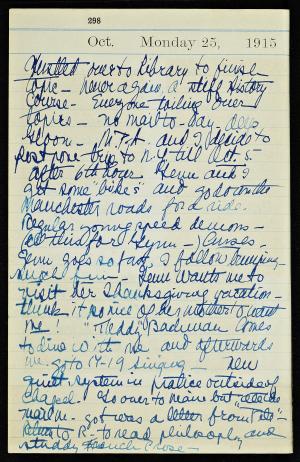 298
Oct. Monday 25, 1915
Hustled over to Library to finish
topic - never again, a stiff History
Course - Everyone toiling over
topics - no mail to-day deep
gloom - and I decide to
postpone trip to N.Y. till Oct. 5-
after 6th hour and I
get some "bikes" and go down the
Manchester roads for a ride.
Regular going speed demons -
goes so fast, I follow bumping -
much fun - wants me to
visit her Thanksgiving vacation -
think it so nice of her mother to want
me! "Teddy" Bachman comes
to dine with me and afterwards
we go to 17-19 singing - new
quiet system in practice outside of
chapel - sooner to mine but
got was a letter from
to R- to read philosophy and
study French Prose -